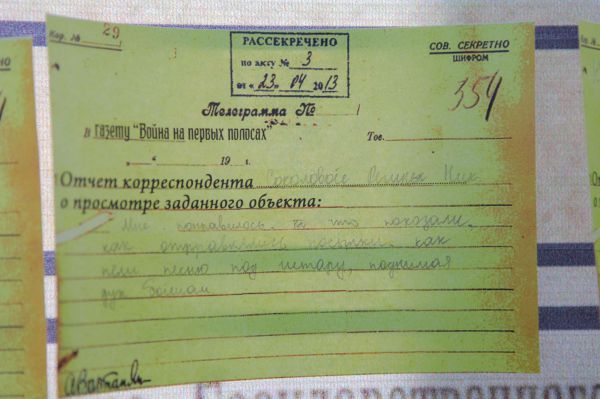 Кор. №
29
РАССЕКРЕЧЕНО
по акту № 3
от «23» 04 2013
СОВ. СЕКРЕТНО
ШИФРОМ
354
Телограмма №
в газету "Война на первых полосах"
Тов.
" " 19 г.
Отчет корреспондента
о просмотре заданного объекта:
Мне понравилось то что показали,
как отправлялись посылки, как
пели песню под гитару, поднимая
дух бойцам
Государственного